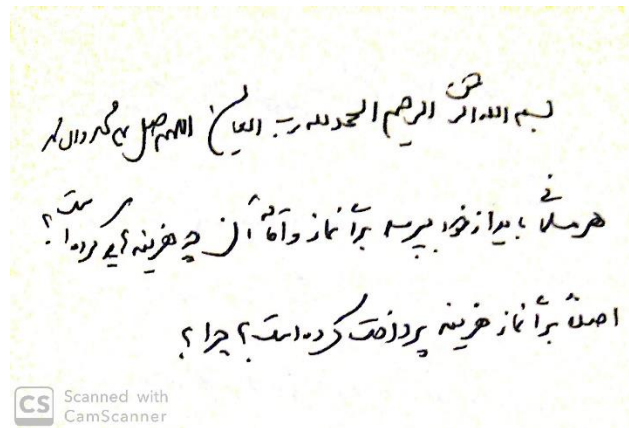 بسم الله الرحمن الرحیم الحمدلله رب العالمین اللهم صل علی محمد وال محمد
هر مسلمانی باید از خود بپرسد برای نماز و اقامه آن چه هزینه ای کرده است؟
اصلاً برای نماز هزینه پرداخت کرده است؟ چرا؟
CS Scanned with
CamScanner